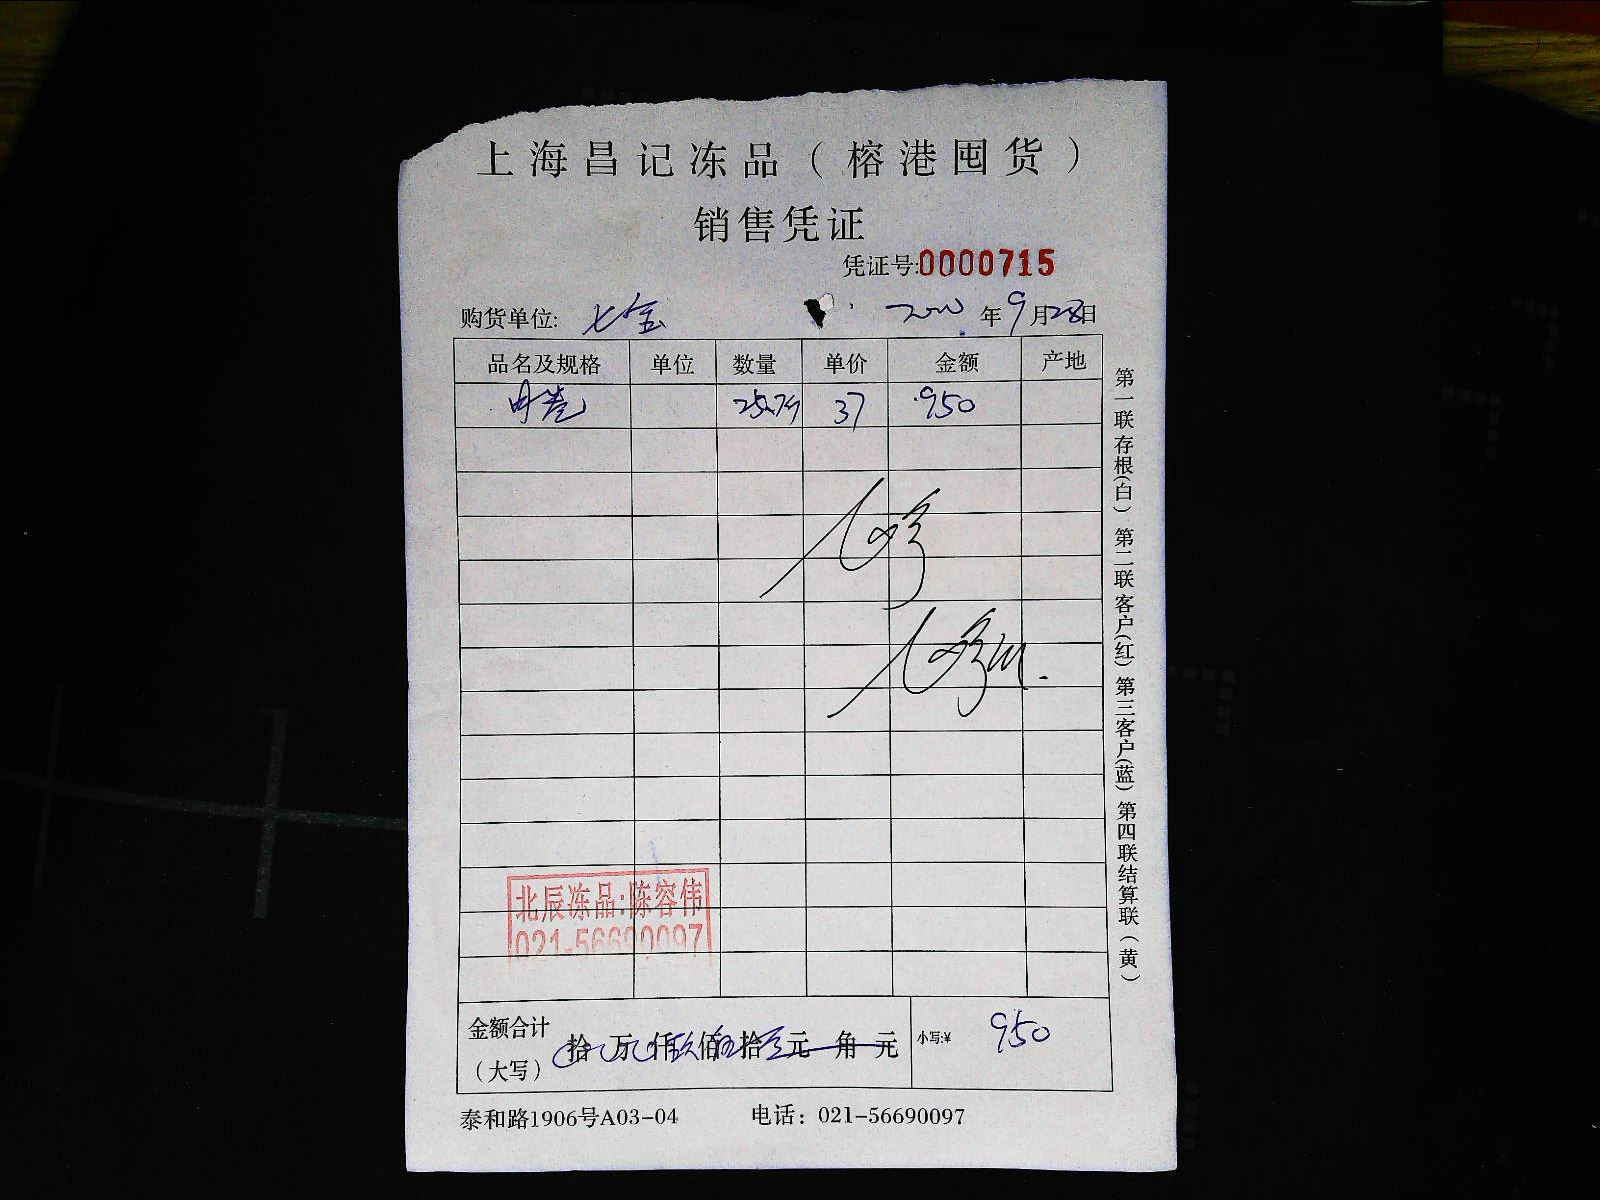 上海昌记冻品（榕港囤货）
销售凭证
凭证号:0000715
购货单位: 七宝 年9月28日
品名及规格 单位 数量 单价 金额 产地
37 950
北辰冻品:陈容伟
021-56690097
金额合计 拾 万 仟玖佰伍拾元 角 元 小写:¥ 950
（大写）
泰和路1906号A03-04 电话：021-56690097
第一联存根(白) 第二联客户(红) 第三客户(蓝) 第四联结算联(黄)